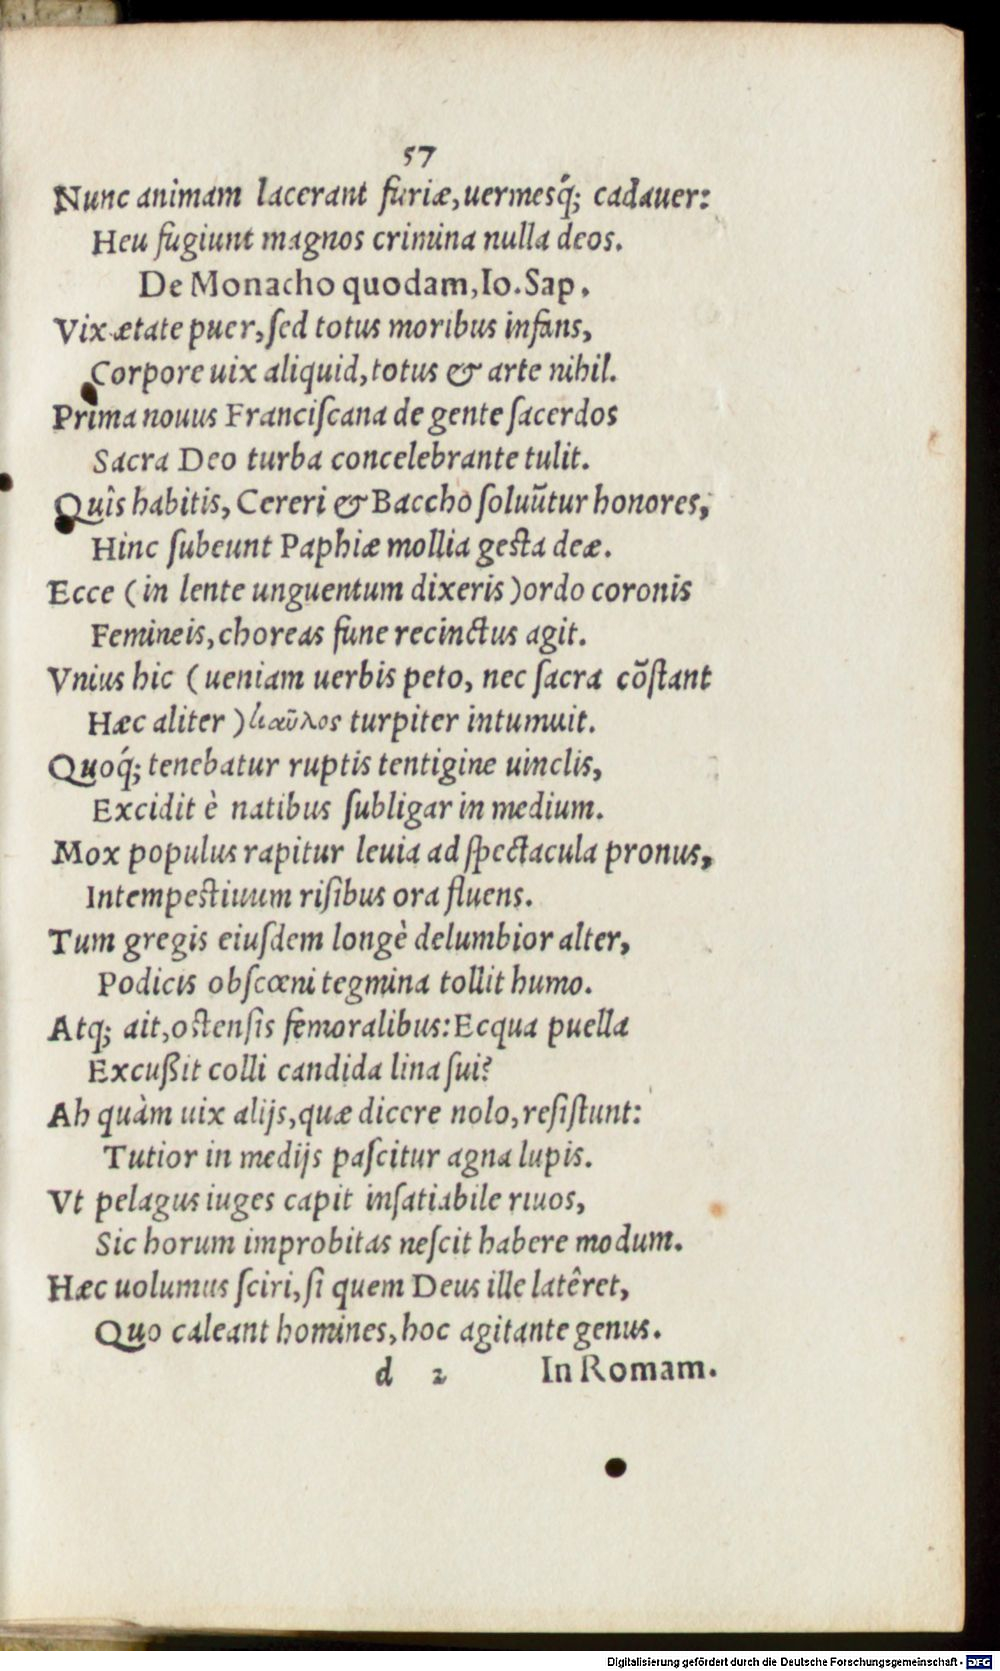 57
Nunc animam lacerant furiæ, uermesq́; cadauer:
Heu fugiunt magnos crimina nulla deos.
De Monacho quodam, Io. Sap.
Vix ætate puer, ſed totus moribus infans,
Corpore uix aliquid, totus & arte nihil.
Prima nouus Franciſcana de gente ſacerdos
Sacra Deo turba concelebrante tulit.
Quîs habitis, Cereri & Baccho ſoluũtur honores,
Hinc ſubeunt Paphiæ mollia geſta deæ.
Ecce (in lente unguentum dixeris) ordo coronis
Femineis, choreas fune recinctus agit.
Vnius hic (ueniam uerbis peto, nec ſacra cõſtant
Hæc aliter) καῦλος turpiter intumuit.
Quoq́; tenebatur ruptis tentigine uinclis,
Excidit è natibus ſubligar in medium.
Mox populus rapitur leuia ad ſpectacula pronus,
Intempeſtiuum riſibus ora fluens.
Tum gregis eiuſdem longè delumbior alter,
Podicis obſcœni tegmina tollit humo.
Atq; ait, oſtenſis femoralibus: Ecqua puella
Excußit colli candida lina ſui?
Ah quàm uix alijs, quæ dicere nolo, reſiſtunt:
Tutior in medijs paſcitur agna lupis.
Vt pelagus iuges capit inſatiabile riuos,
Sic horum improbitas neſcit habere modum.
Hæc uolumus ſciri, ſi quem Deus ille latêret,
Quo caleant homines, hoc agitante genus.
d 2 In Romam.
Digitalisierung gefördert durch die Deutsche Forschungsgemeinschaft - DFG